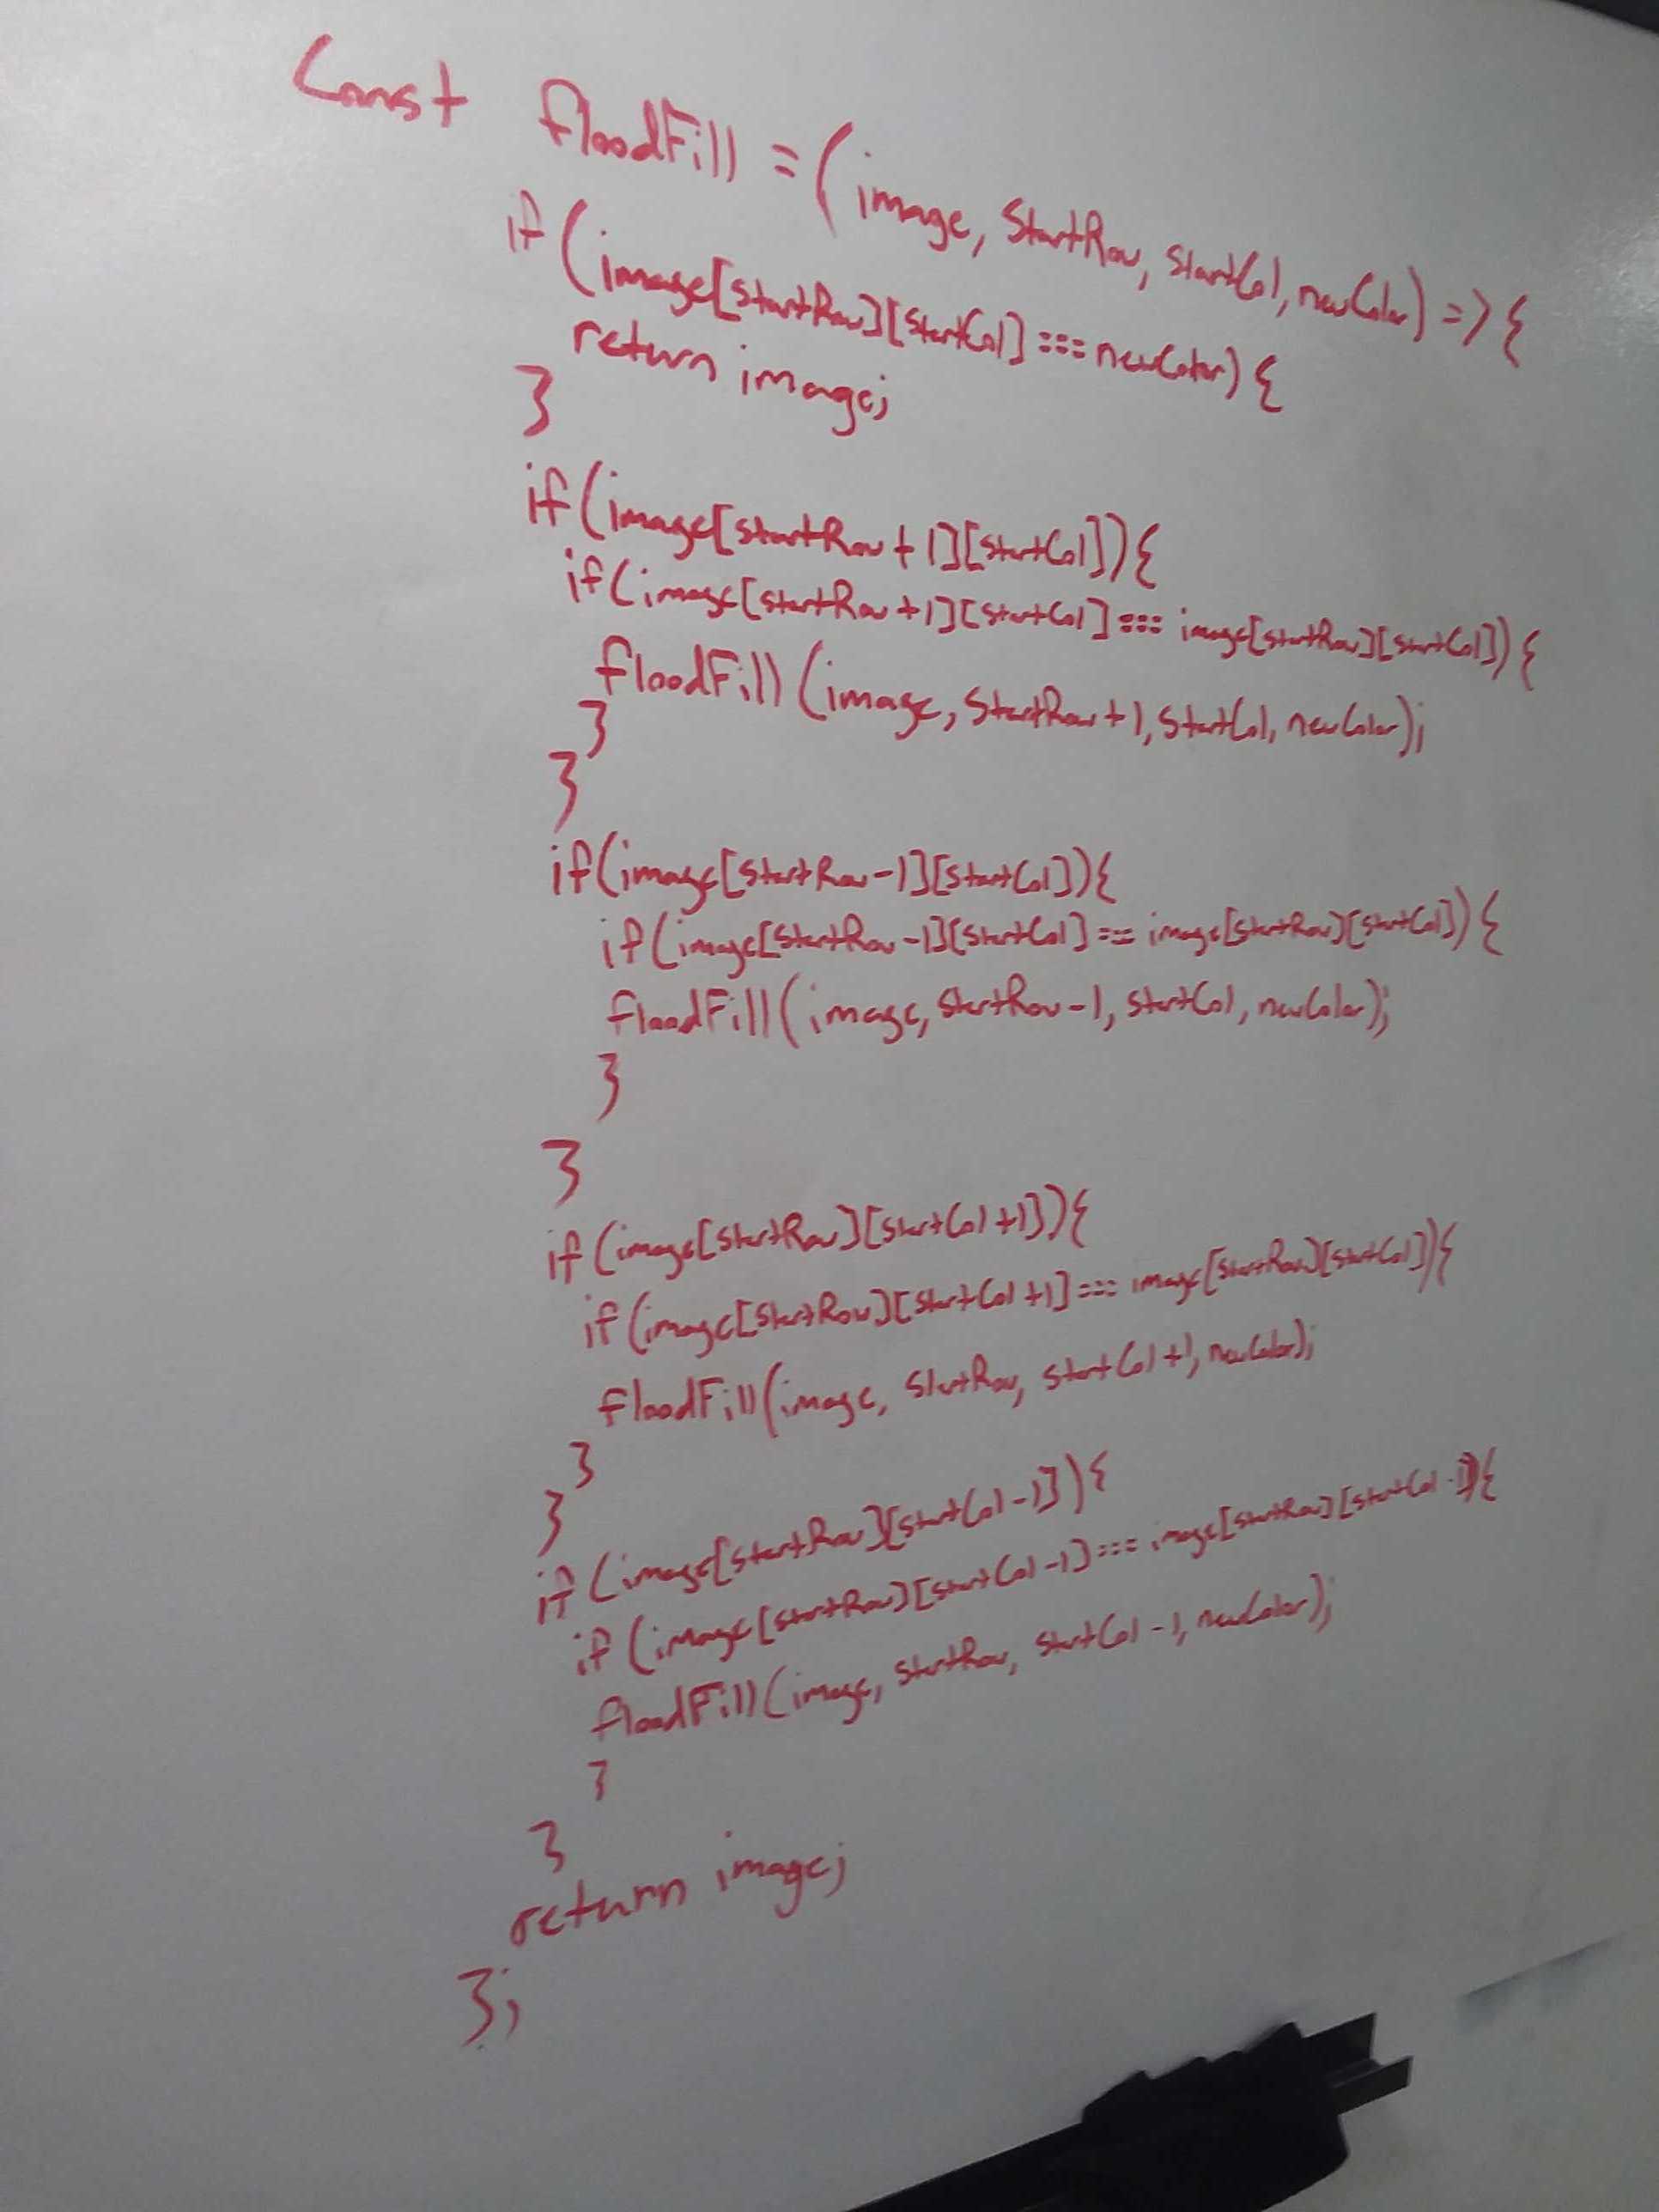 Const floodFill = (image, StartRow, startCol, newColor) => {
if (image[startRow][startCol] === newColor) {
return image;
}
if (image[startRow + 1][startCol]) {
if (image[startRow +1][startCol] === image[startRow][startCol]) {
floodFill (image, StartRow+1, StartCol, newColor);
}
}
if (image[startRow-1][startCol]) {
if (image[startRow-1][startCol] === image[startRow][startCol]) {
floodFill (image, startRow-1, startCol, newColor);
}
}
if (image[startRow][startCol+1]) {
if (image[startRow][startCol+1] === image[startRow][startCol]) {
floodFill(image, startRow, startCol+1, newColor);
}
}
if (image[startRow][startCol-1]) {
if (image[startRow][startCol-1] === image[startRow][startCol-1]) {
floodFill(image, startRow, startCol-1, newColor);
}
}
return image;
};